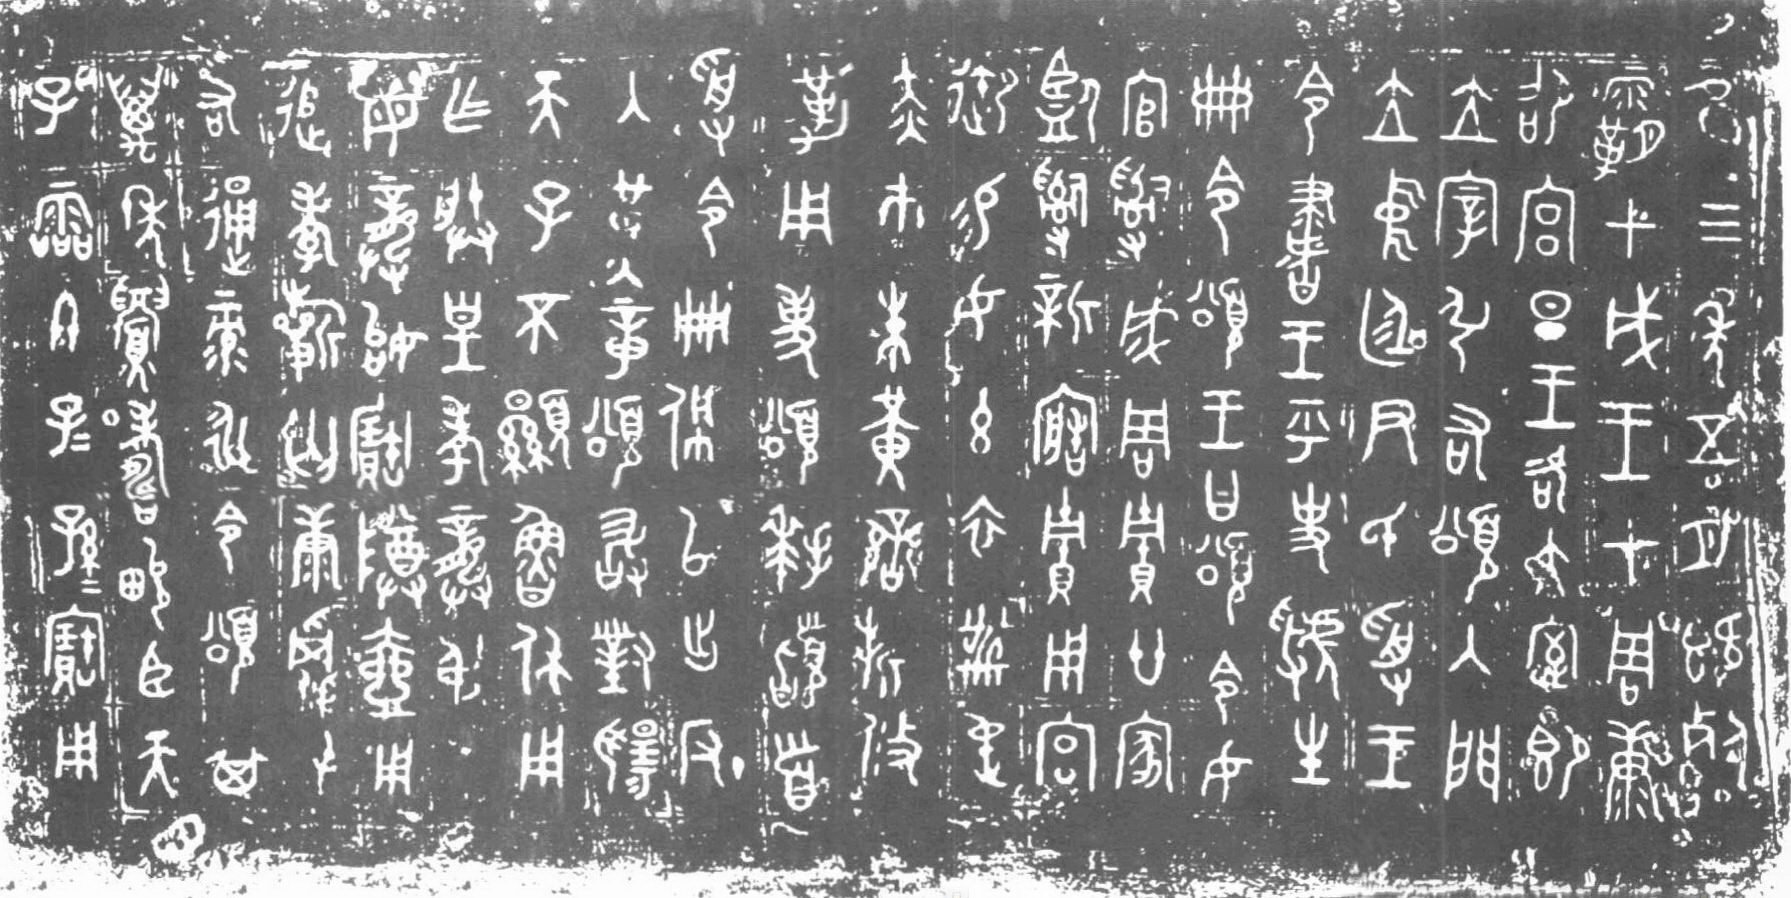 隹三年五月既死
霸甲戌王才周康
卲宮旦王各大室即
立宰弘右頌入門
立中廷尹氏受王
令書王乎史虢生
冊令頌王曰頌令女
官𤔲成周貯廿家
監𤔲新造貯用宮
御易女玄衣黹屯
赤巿朱黃䜌旂攸
勒用事頌拜𩒨首
受令冊佩以出反
入堇章頌敢對揚
天子不顯魯休用
乍朕皇考龏弔
皇母龏始寶尊壺用
追孝祈匄康𠭯屯
右通彔永令頌其
萬年眉壽畯臣天
子霝冬子=孫=寶用